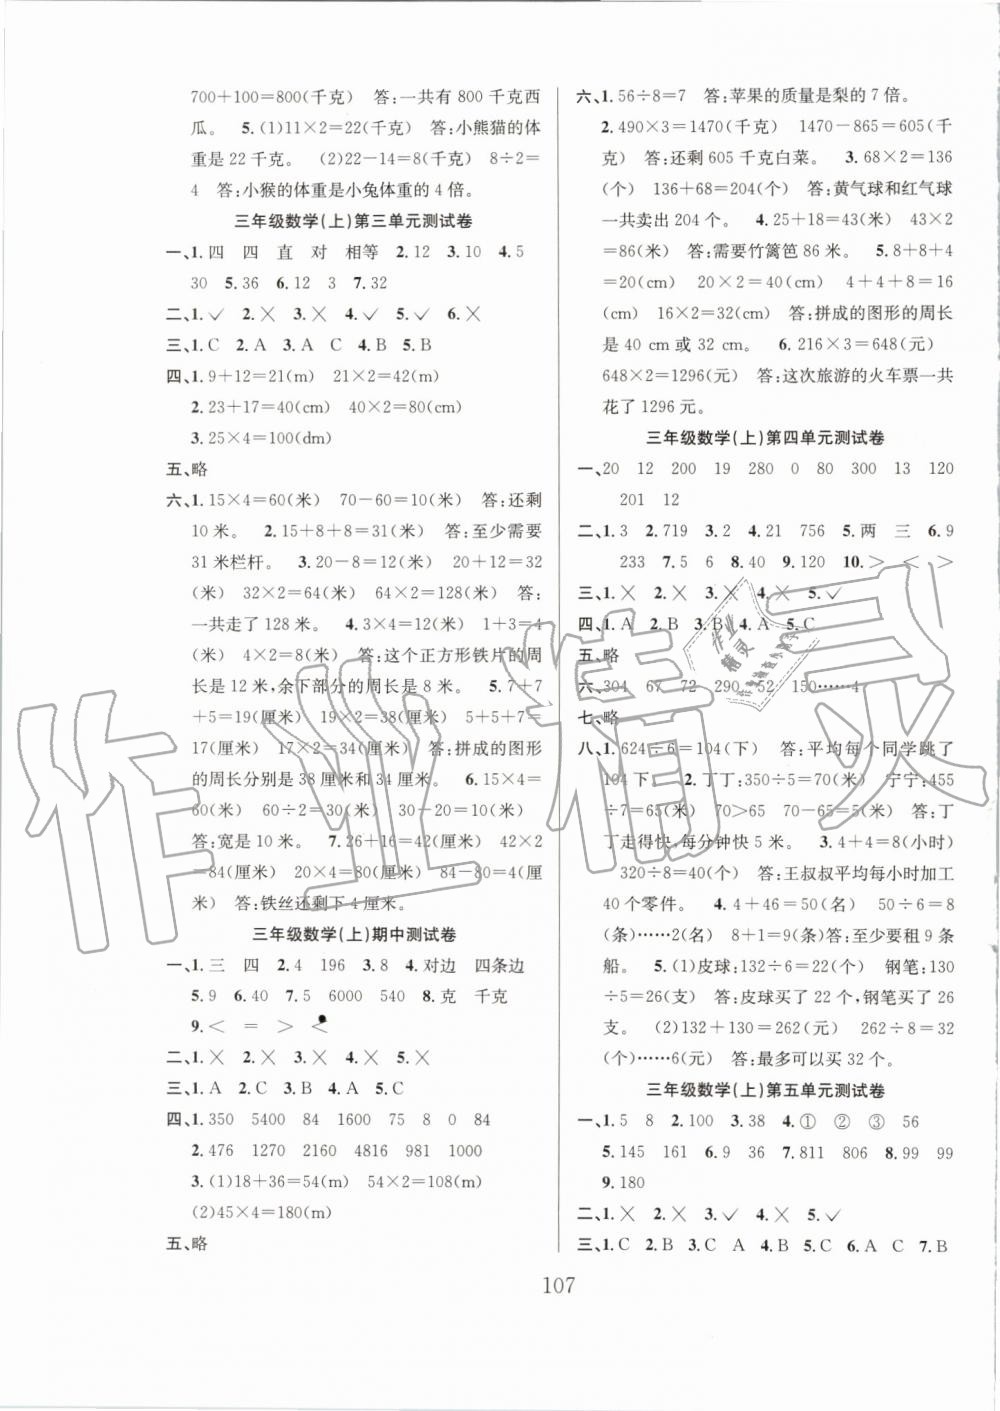 700+100=800(千克) 答:一共有 800 千克西
瓜。 5.(1)11×2=22(千克) 答:小熊猫的体
重是 22 千克。 (2)22-14=8(千克) 8÷2=
4 答:小猴的体重是小兔体重的 4 倍。
三年级数学(上)第三单元测试卷
一、1.四 四 直 对 相等 2.12 3.10 4.5
30 5.36 6.12 3 7.32
二、1.✓ 2.╳ 3.╳ 4.✓ 5.✓ 6.╳
三、1.C 2.A 3.A C 4.B 5.B
四、1.9+12=21(m) 21×2=42(m)
2.23+17=40(cm) 40×2=80(cm)
3.25×4=100(dm)
五、略
六、1.15×4=60(米) 70-60=10(米) 答:还剩
10 米。 2.15+8+8=31(米) 答:至少需要
31 米栏杆。 3.20-8=12(米) 20+12=32
(米) 32×2=64(米) 64×2=128(米) 答:
一共走了 128 米。 4.3×4=12(米) 1+3=4
(米) 4×2=8(米) 答:这个正方形铁片的周
长是 12 米,余下部分的周长是 8 米。 5.7+7
+5=19(厘米) 19×2=38(厘米) 5+5+7=
17(厘米) 17×2=34(厘米) 答:拼成的图形
的周长分别是 38 厘米和 34 厘米。 6.15×4=
60(米) 60÷2=30(米) 30-20=10(米)
答:宽是 10 米。 7.26+16=42(厘米) 42×2
=84(厘米) 20×4=80(厘米) 84-80=4(厘
米) 答:铁丝还剩下 4 厘米。
三年级数学(上)期中测试卷
一、1.三 四 2.4 196 3.8 4.对边 四条边
5.9 6.40 7.5 6000 540 8.克 千克
9.< = > <
二、1.╳ 2.╳ 3.╳ 4.╳ 5.╳
三、1.A 2.C 3.B 4.A 5.C
四、1.350 5400 84 1600 75 8 0 84
2.476 1270 2160 4816 981 1000
3.(1)18+36=54(m) 54×2=108(m)
(2)45×4=180(m)
五、略
六、1.56÷8=7 答:苹果的质量是梨的 7 倍。
2.490×3=1470(千克) 1470-865=605(千
克) 答:还剩 605 千克白菜。 3.68×2=136
(个) 136+68=204(个) 答:黄气球和红气球
一共卖出 204 个。 4.25+18=43(米) 43×2
=86(米) 答:需要竹篱笆 86 米。 5.8+8+4
=20(cm) 20×2=40(cm) 4+4+8=16
(cm) 16×2=32(cm) 答:拼成的图形的周长
是 40 cm 或 32 cm。 6.216×3=648(元)
648×2=1296(元) 答:这次旅游的火车票一共
花了 1296 元。
三年级数学(上)第四单元测试卷
一、20 12 200 19 280 0 80 300 13 120
201 12
二、1.3 2.719 3.2 4.21 756 5.两 三 6.9
233 7.5 6 8.40 9.120 10.> < >
三、1.╳ 2.╳ 3.╳ 4.╳ 5.✓
四、1.A 2.B 3.B 4.A 5.C
五、略
六、304 67 72 290 52 150……4
七、略
八、1.624÷6=104(下) 答:平均每个同学跳了
104 下。 2.丁丁:350÷5=70(米) 宁宁:455
÷7=65(米) 70>65 70-65=5(米) 答:丁
丁走得快,每分钟快 5 米。 3.4+4=8(小时)
320÷8=40(个) 答:王叔叔平均每小时加工
40 个零件。 4.4+46=50(名) 50÷6=8
(条)……2(名) 8+1=9(条) 答:至少要租 9 条
船。 5.(1)皮球:132÷6=22(个) 钢笔:130
÷5=26(支) 答:皮球买了 22 个,钢笔买了 26
支。 (2)132+130=262(元) 262÷8=32
(个)……6(元) 答:最多可以买 32 个。
三年级数学(上)第五单元测试卷
一、1.5 8 2.100 3.38 4.① ② ③ 56
5.145 161 6.9 36 7.811 806 8.99 99
9.180
二、1.╳ 2.╳ 3.✓ 4.╳ 5.✓
三、1.C 2.B 3.C A 4.B 5.A 6.A C 7.B
107
作业精灵